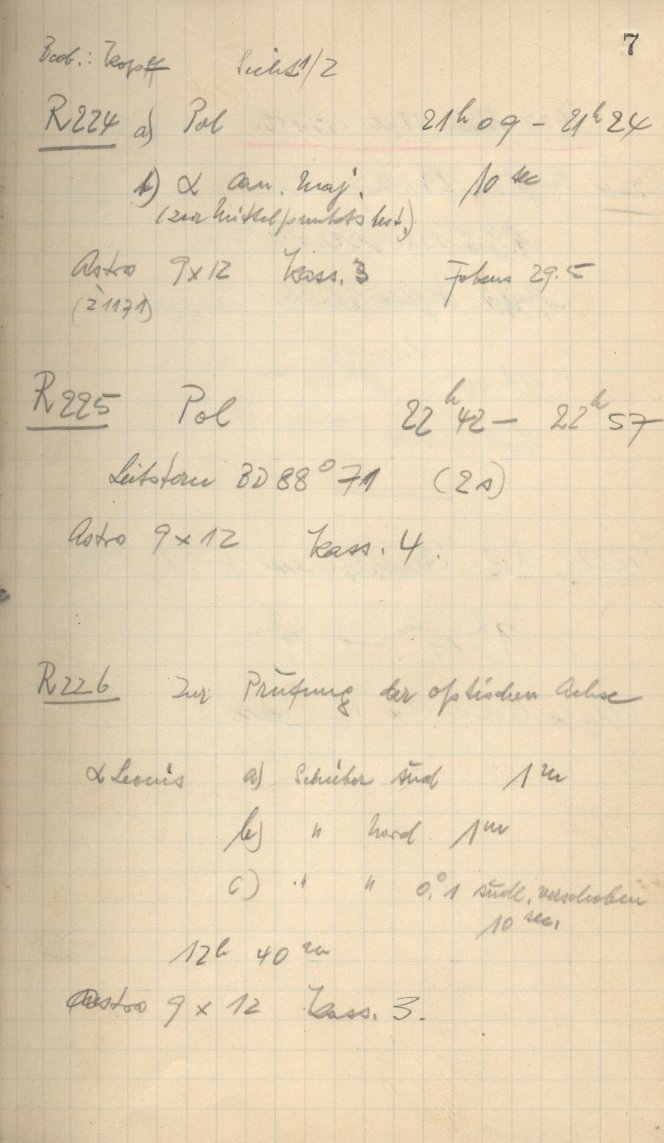 7
Beob.: Kopff Sicht 1/2
R224 a) Pol 21h 09 - 21h 24
b) α Can. Maj. 10 sec
(zur Mittelpunktsbest.)
Astro 9x12 Kass. 3 Fokus 29.5
(21171)
R225 Pol 22h 42 - 22h 57
Leitstern BD 88° 71 (2s)
Astro 9x12 Kass. 4.
R226 Zur Prüfung der optischen Achse
α Leonis a) Schieber süd 1m
b) " Nord 1m
c) " " 0.°1 südl. verschoben
10 sec.
12h 40m
Astro 9x12 Kass. 3.